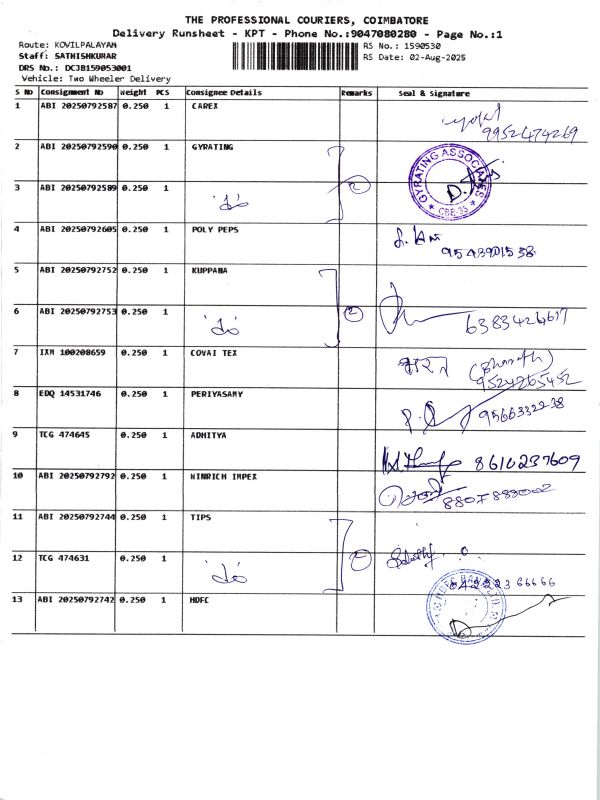 THE PROFESSIONAL COURIERS, COIMBATORE
Delivery Runsheet - KPT - Phone No.:9047080280 - Page No.:1
Route: KOVILPALAYAM
RS No.: 1590530
Staff: SATHISHKUMAR
RS Date: 02-Aug-2025
DRS No.: DCJB159053001
Vehicle: Two Wheeler Delivery
S No Consignment No Weight PCS Consignee Details Remarks Seal & Signature
1 ABI 20250792587 0.250 1 CAREX
9952474269
2 ABI 20250792590 0.250 1 GYRATING
GYRATING ASSOCIATES
CBE-35
3 ABI 20250792589 0.250 1 2
4 ABI 20250792605 0.250 1 POLY PEPS
5 ABI 20250792752 0.250 1 KUPPANA
6 ABI 20250792753 0.250 1 2
6383424617
7 IXM 100208659 0.250 1 COVAI TEX
भारत (Bharath)
9524265452
8 EDQ 14531746 0.250 1 PERIYASAMY
9566332238
9 TCG 474645 0.250 1 ADHITYA
8610237609
10 ABI 20250792792 0.250 1 WINRICH IMPEX
11 ABI 20250792744 0.250 1 TIPS
12 TCG 474631 0.250 1
13 ABI 20250792742 0.250 1 HDFC